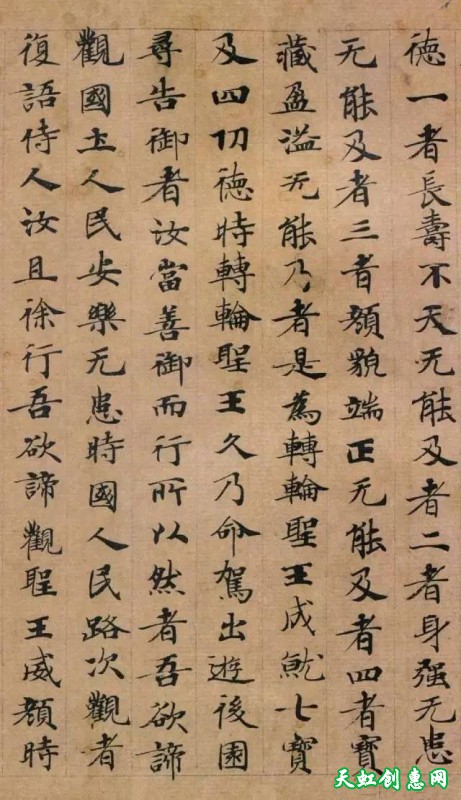 徳一者長壽不夭无能及者二者身强无患
无能及者三者顔貌端正无能及者四者寶
藏盈溢无能及者是為轉輪聖王成就七寶
及四功徳時轉輪聖王久乃命駕出遊後園
尋告御者汝當善御而行所以然者吾欲諦
觀國土人民安樂无患時國人民路次觀者
復語侍人汝且徐行吾欲諦觀聖王威顔時
天虹创惠网